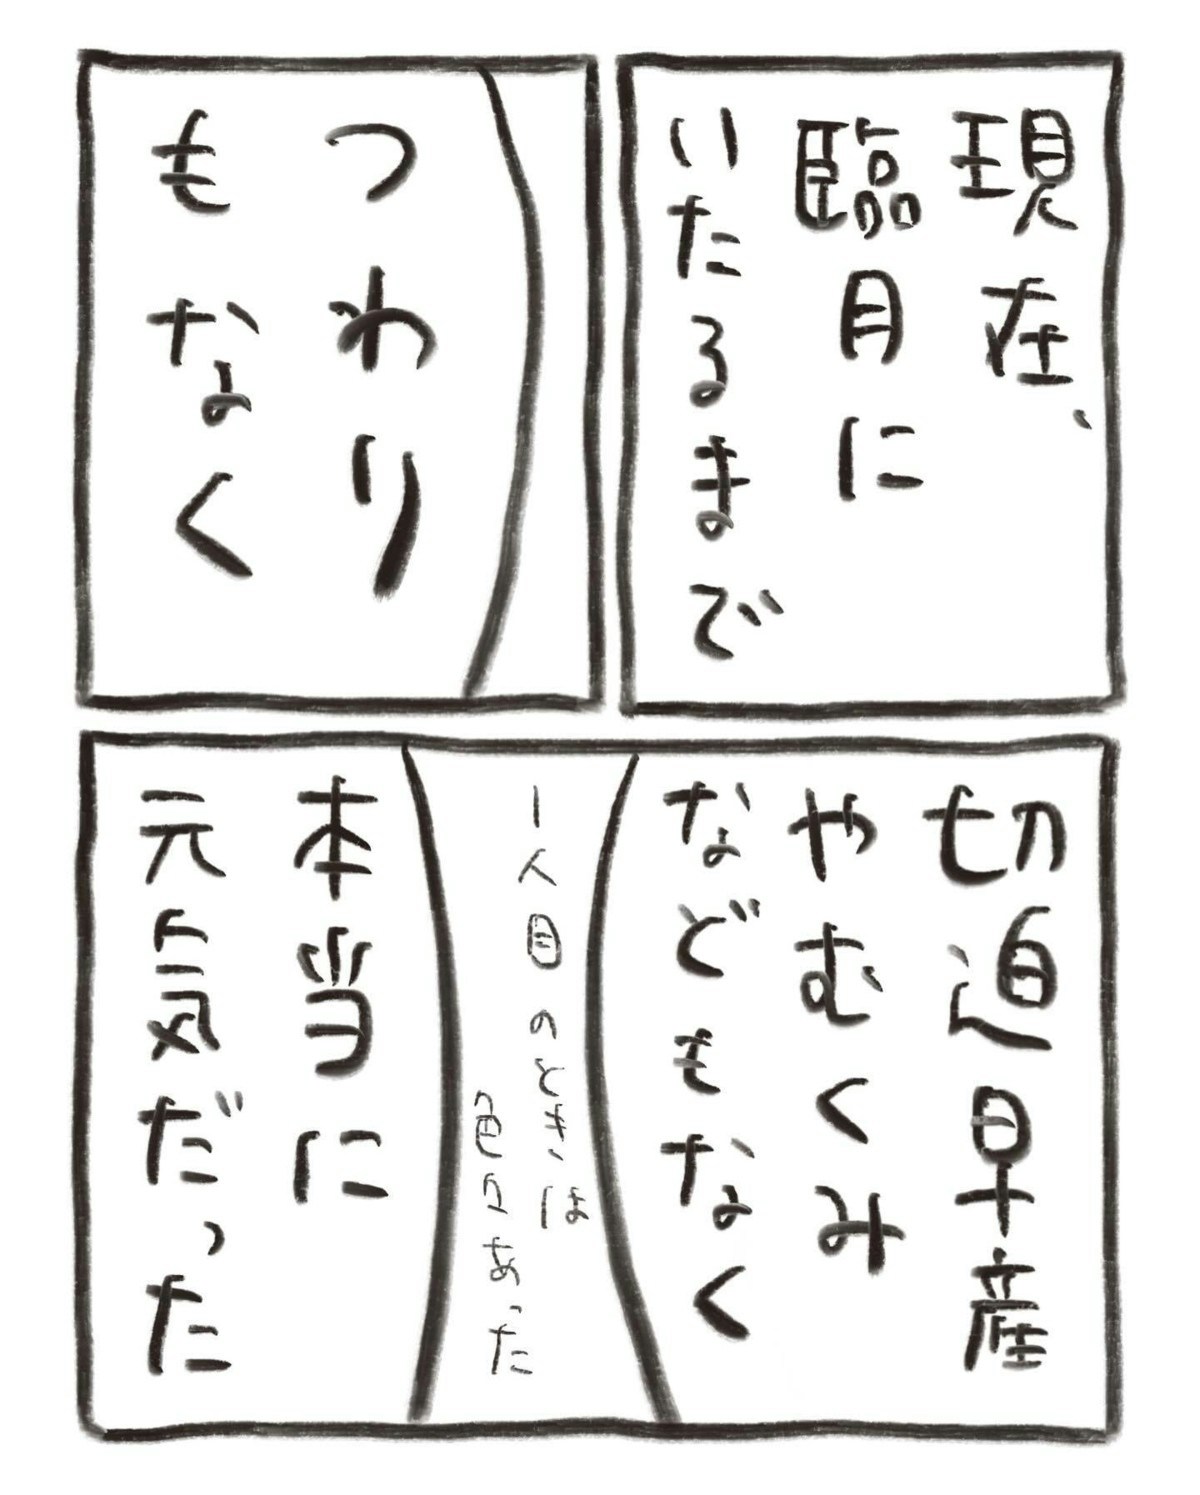 現在、
臨月に
いたるまで
つわり
もなく
切迫早産
やむくみ
などもなく
一人目のときは
色々あった
本当に
元気だった